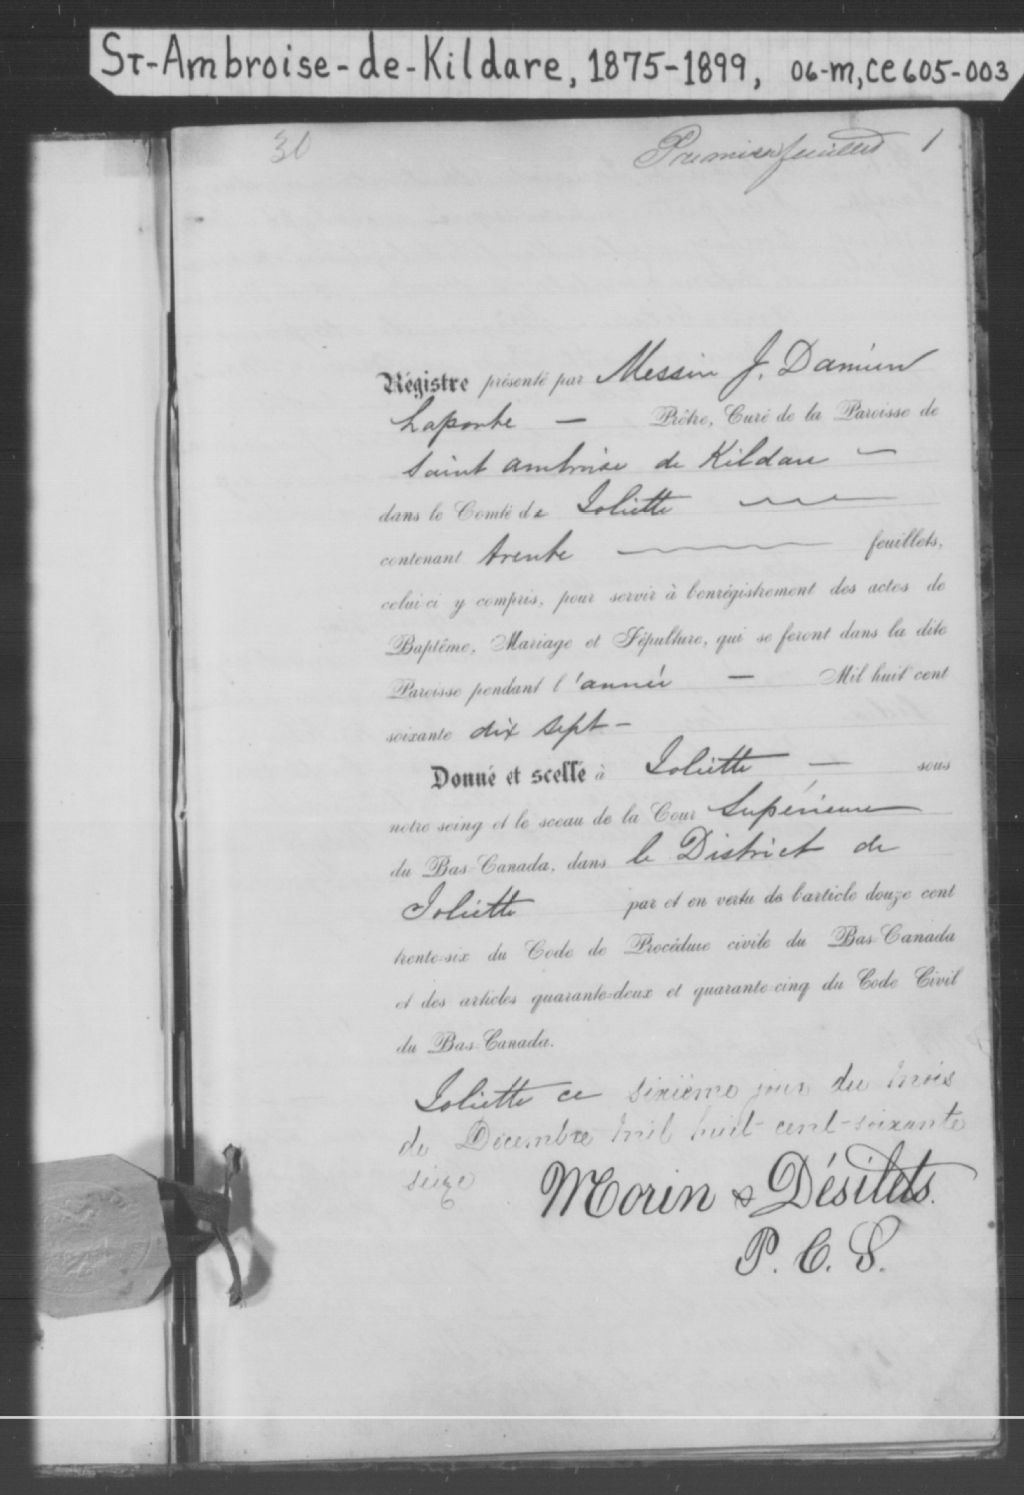 St-Ambroise-de-Kildare, 1875-1899, 06-M, CE605-003
30
Premier feuillet 1
Régistre présenté par Messire J. Damien
Laporte — Prêtre, Curé de la Paroisse de
Saint Ambroise de Kildare —
dans le Comté de Joliette
contenant trente feuillets,
celui-ci y compris, pour servir à l'enrégistrement des actes de
Baptême, Mariage et Sépulture, qui se feront dans la dite
Paroisse pendant l'année — Mil huit cent
soixante dix sept —
Donné et scellé à Joliette — sous
notre seing et le sceau de la Cour Supérieure
du Bas-Canada, dans le District de
Joliette par et en vertu de l'article douze cent
trente-six du Code de Procédure civile du Bas-Canada
et des articles quarante-deux et quarante-cinq du Code Civil
du Bas-Canada.
Joliette ce sixième jour du mois
de Décembre mil huit cent-soixante
seize
Morin & Désilets.
P. C. S.